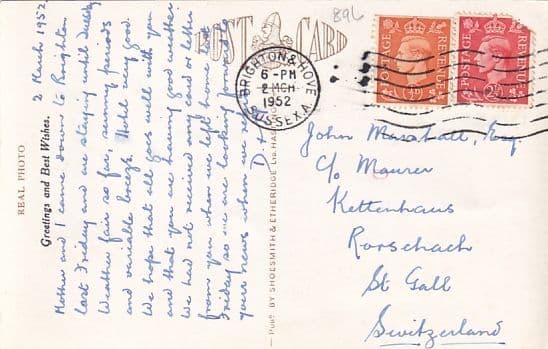 REAL PHOTO
Greetings and Best Wishes.
2 March 1952
Mother and I came down to Brighton
last Friday and are staying until
Weather fair so far, sunny periods
and variable breeze. Hotel very good.
We hope that all goes well with you
and that you are having good weather.
We had not received any card or letter
from you when we left home last
Friday so we are looking for
your news when we
D +
— PUBD BY SHOESMITH & ETHERIDGE LTD. HAS
POST CARD
896
BRIGHTON & HOVE
6 - PM
2 MCH
1952
SUSSEX. A.
POSTAGE REVENUE
POSTAGE REVENUE
John Marshall, Esq.
c/o Maurer
Kettenhaus
Rorschach
St Gall
Switzerland